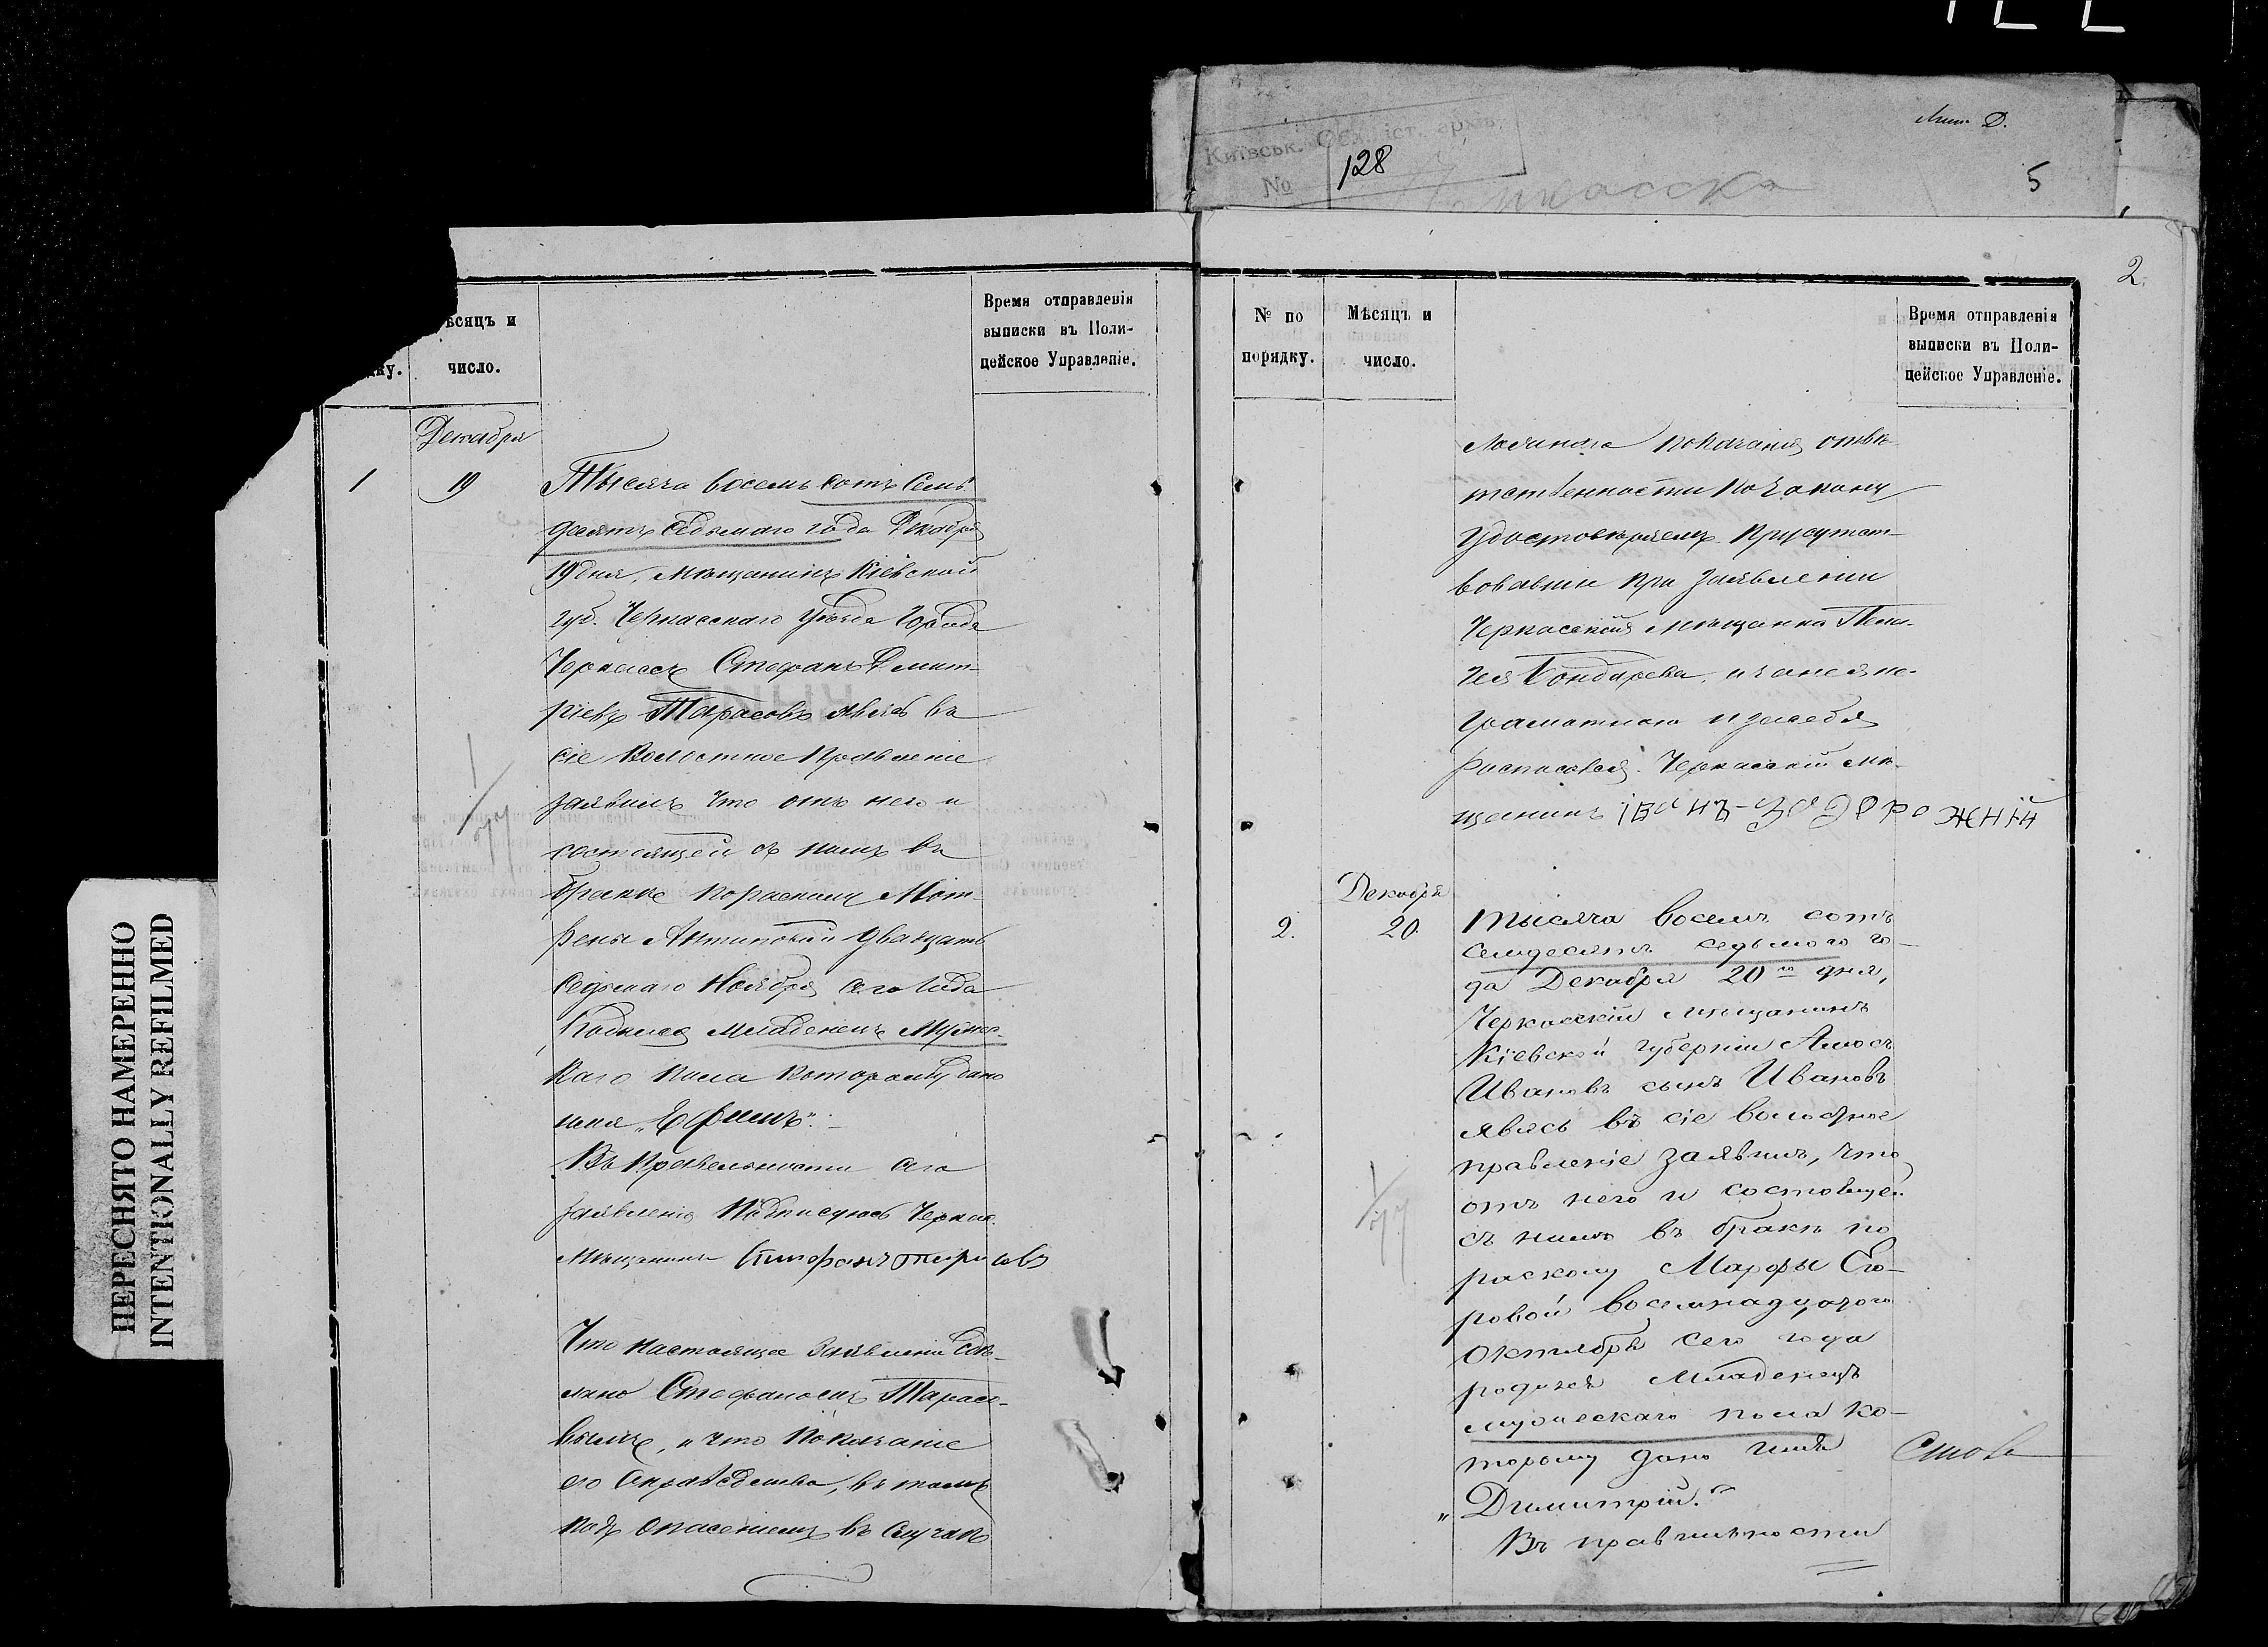 Лит. Д.
Київськ. Обл. іст. архів
№ 128
5
2.
ѣсяцъ и
число.
Время отправленія
выписки въ Поли-
цейское Управленіе.
Декабря
1 19 Тысяча восемь сотъ семь
десятъ седьмаго года Декабря
19 дня, мѣщанинъ Кіевской
губ. Черкасскаго уѣзда города
Черкассъ Стефанъ Дмит-
ріевъ Тарасовъ явясь въ
сіе Волостное Правленіе
заявилъ что отъ него и
состоящей съ нимъ въ
бракѣ порасколу Мат-
рены Антиповой двацать
седьмаго Ноября сего года
родился младенецъ мужес-
каго пола которому дано
имя „Ефимъ".
1/77
Въ правельности сего
заявленія подписуюсь Черкас.
мѣщанинъ Стефанъ Тарасовъ
Что настоящее заявленіе сдѣ-
лано Стефаномъ Тарасо-
вымъ, и что показаніе
его справедливо, въ томъ
подъ опасеніемъ въ случаѣ
№ по
порядку.
Мѣсяцъ и
число.
Время отправленія
выписки въ Поли-
цейское Управленіе.
ложнаго показанія отвѣт-
тственности по закону
удостовѣряемъ. Присутст-
вовавшіе при заявленіи
Черкасская мѣщанка
Бондарева, а за нея не-
грамотною и за себя
росписался. Черкасскій мѣ-
щанинъ Іванъ
Декабря
2. 20. Тысяча восемь сотъ
семдесятъ седьмого го-
да Декабря 20го дня,
Черкасскій мѣщанинъ
Кіевской губерніи Амосъ
Ивановъ сынъ Ивановъ
явясь въ сіе волосное
правленіе заявилъ, что
отъ него и состовщей
съ нимъ въ бракѣ по
расколу Марфы Его-
ровой восемнадцатого
Октября сего года
родился младенецъ
мужескаго пола ко-
торому дано имя
„Димитрій."
Въ правильности
1/77
ПЕРЕСНЯТО НАМЕРЕННО
INTENTIONALLY REFILMED